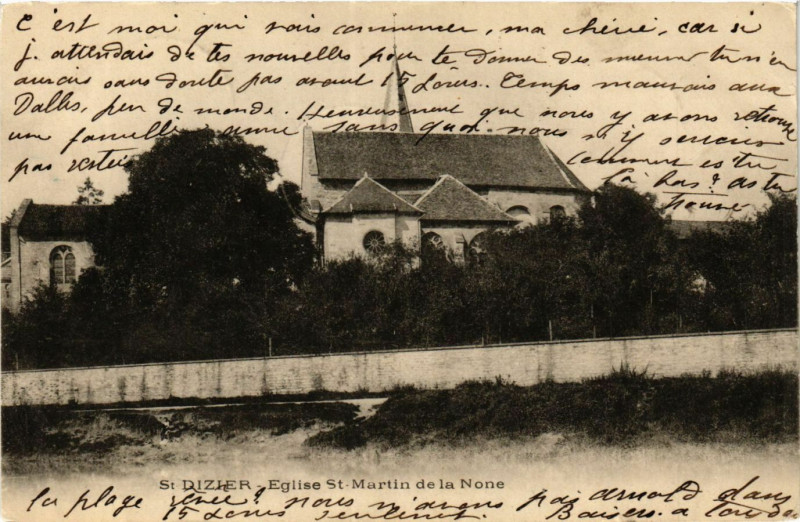 C'est moi qui vais commencer, ma chérie, car si
j'attendais de tes nouvelles pour te donner des miennes tu n'en
aurais sans doute pas avant 15 jours. Temps mauvais aux
Dalles, peu de monde. Heureusement que nous y avons retrouvé
une famille amie sans quoi nous n'y serions
pas restés comment es-tu
là bas? as-tu
trouvé
St DIZIER - Eglise St-Martin de la None
la plage rêvée? nous n'avons pas Arnold dans
15 jours seulement. Baisers à tous deux